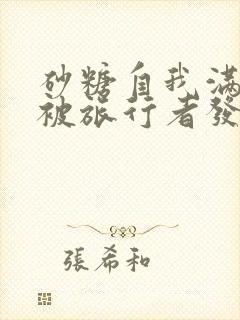 砂糖自我滿
被旅行者發
張希和